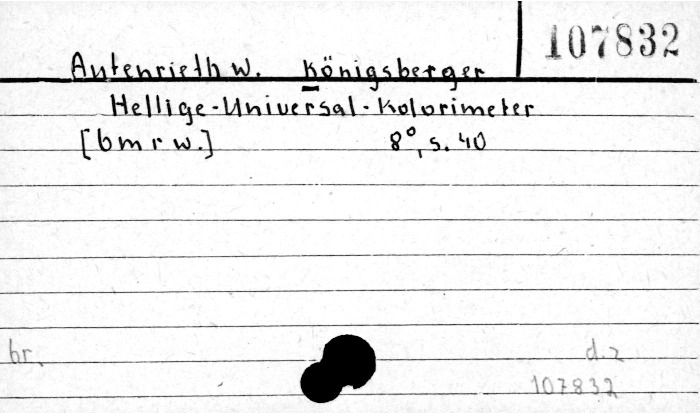 107832
Autenrieth W. Königsberger
Hellige-Universal-Kolorimeter
[b m r w.] 8°, s. 40
br. d. z
107832